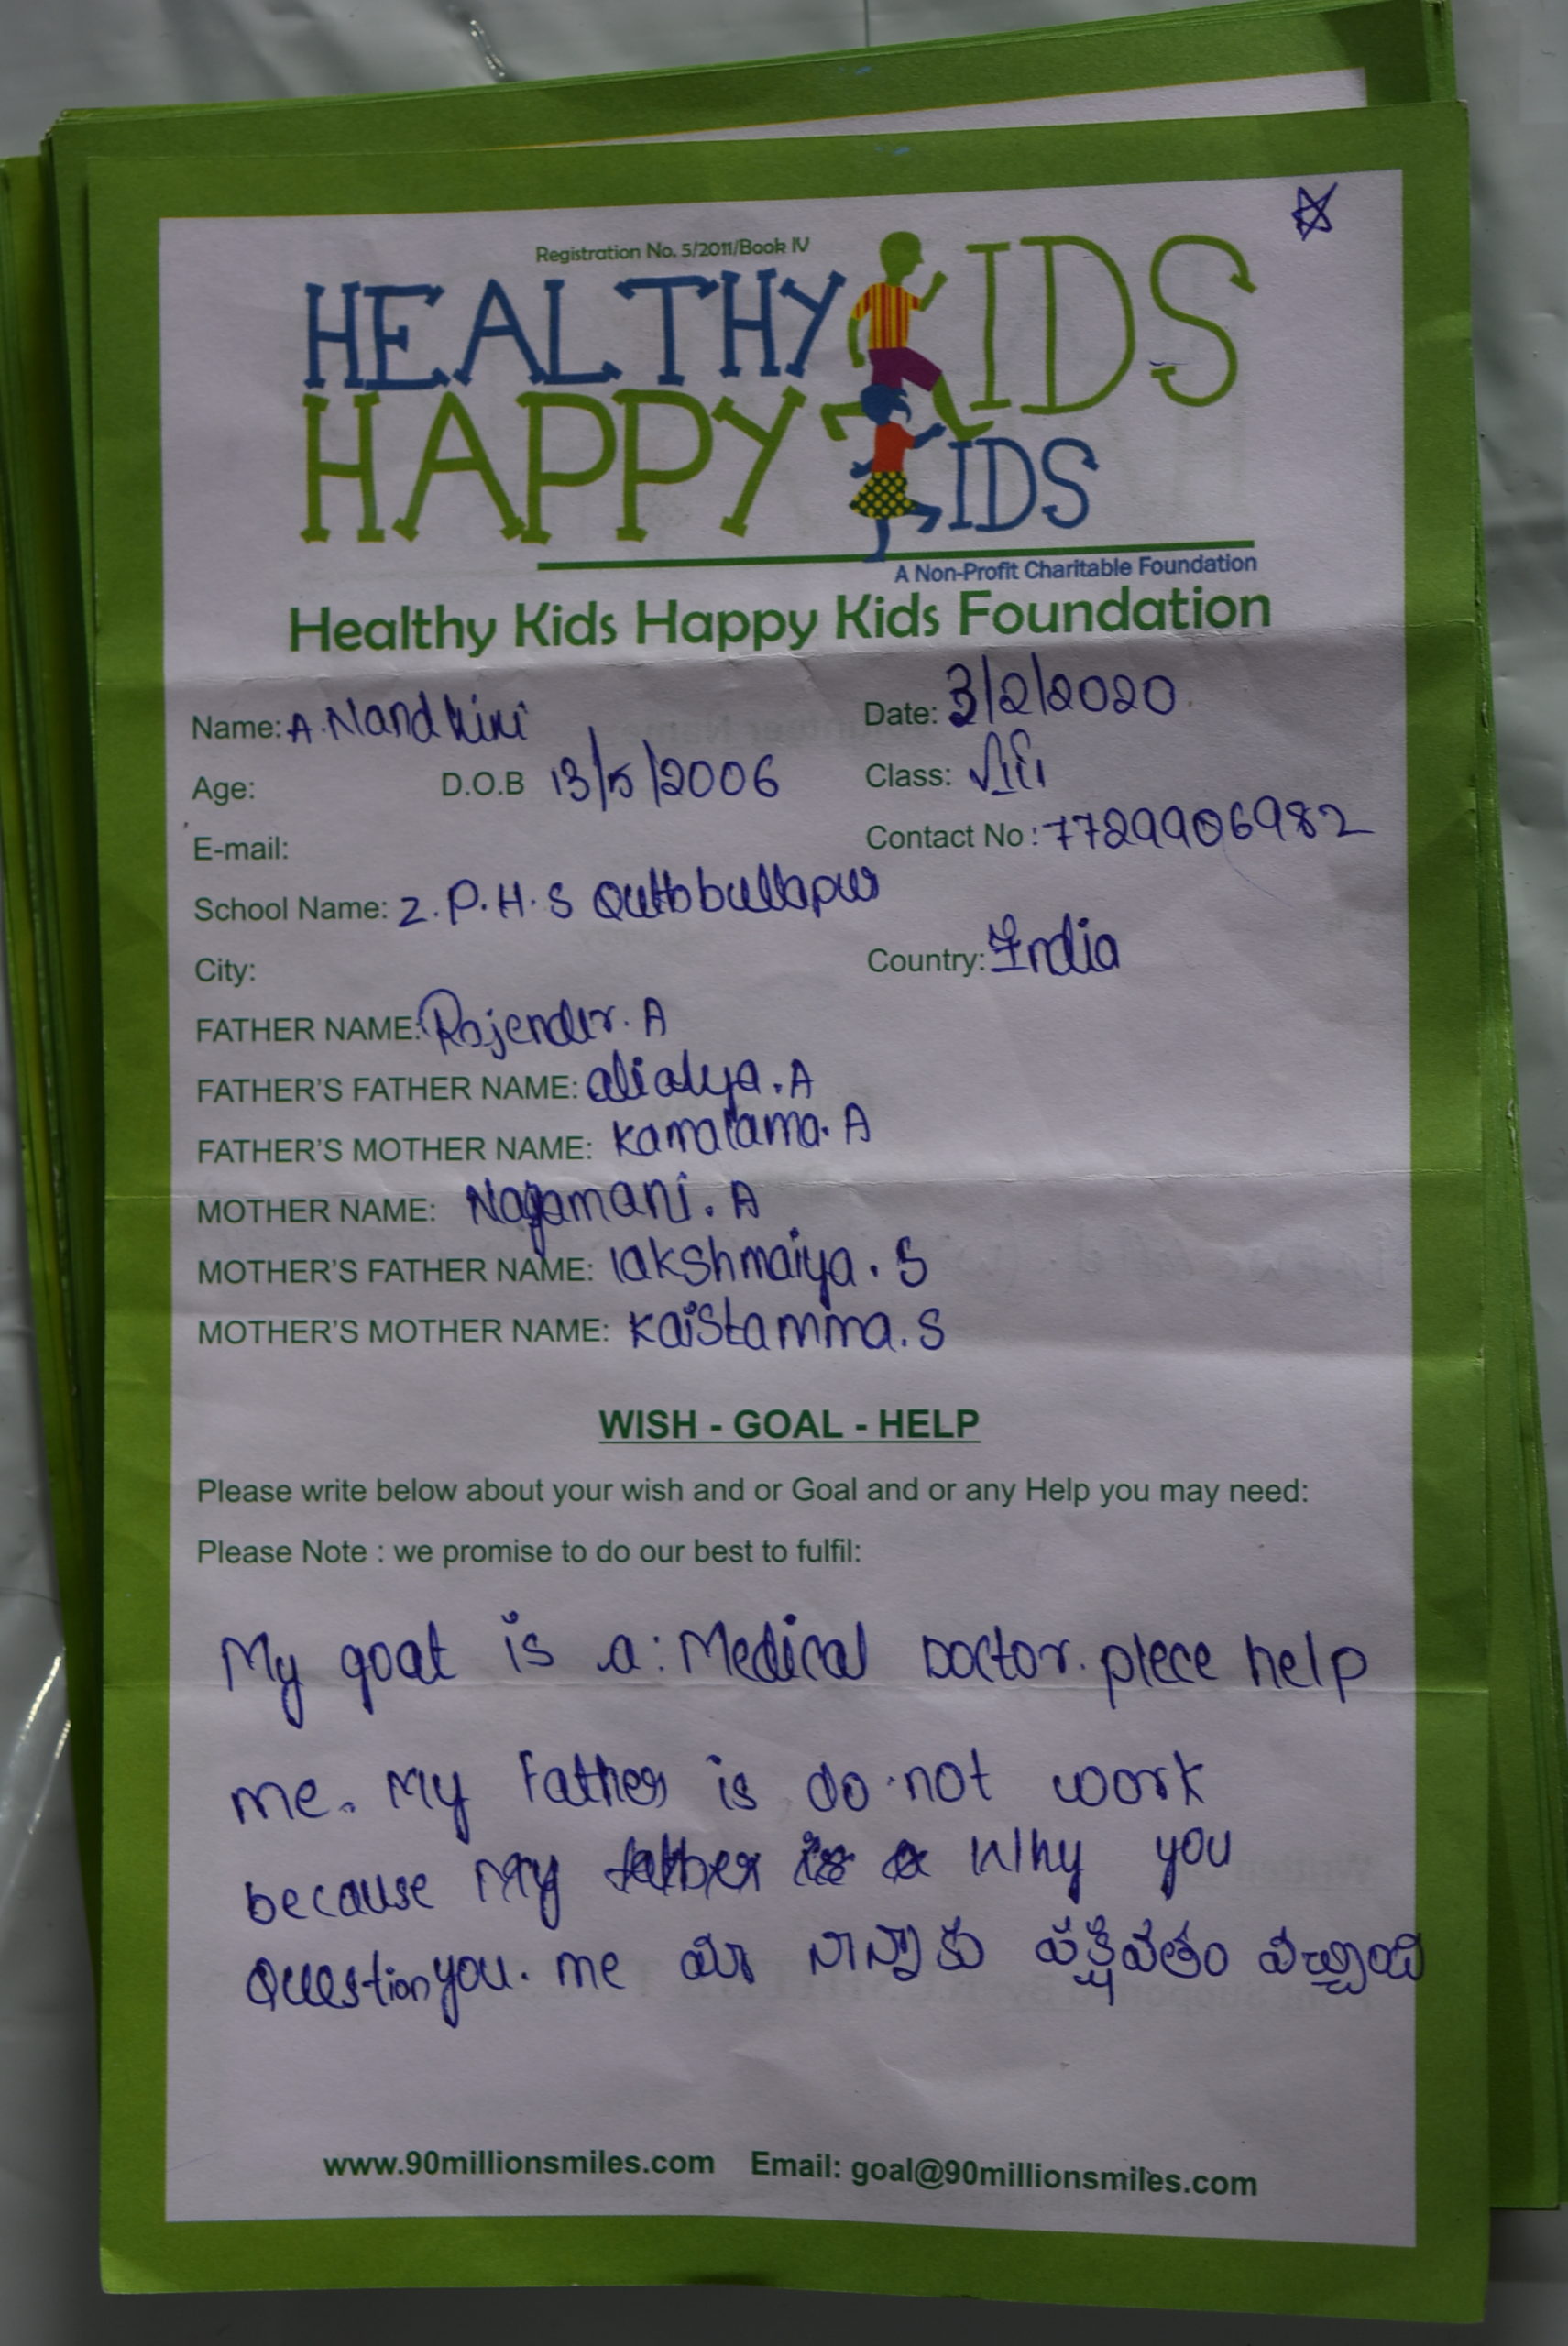 Registration No. 5/2011/Book IV
HEALTHY KIDS
HAPPY KIDS
A Non-Profit Charitable Foundation
Healthy Kids Happy Kids Foundation
Name: A. Nandhini Date: 3/2/2020
Age: D.O.B 13/5/2006 Class: VIII
E-mail: Contact No : 7729906982
School Name: Z. P. H. S Qutbbullapur
City: Country: India
FATHER NAME: Rajender. A
FATHER'S FATHER NAME: alialya. A
FATHER'S MOTHER NAME: kamalama. A
MOTHER NAME: Nagamani. A
MOTHER'S FATHER NAME: lakshmaiya. S
MOTHER'S MOTHER NAME: kaistamma. S
WISH - GOAL - HELP
Please write below about your wish and or Goal and or any Help you may need:
Please Note : we promise to do our best to fulfil:
My goat is a: Medical Doctor. plece help
me. My Father is do not work
because my father is a Why you
Question you. me మా నాన్నాకు పక్షవతం వచ్చింది
www.90millionsmiles.com Email: goal@90millionsmiles.com